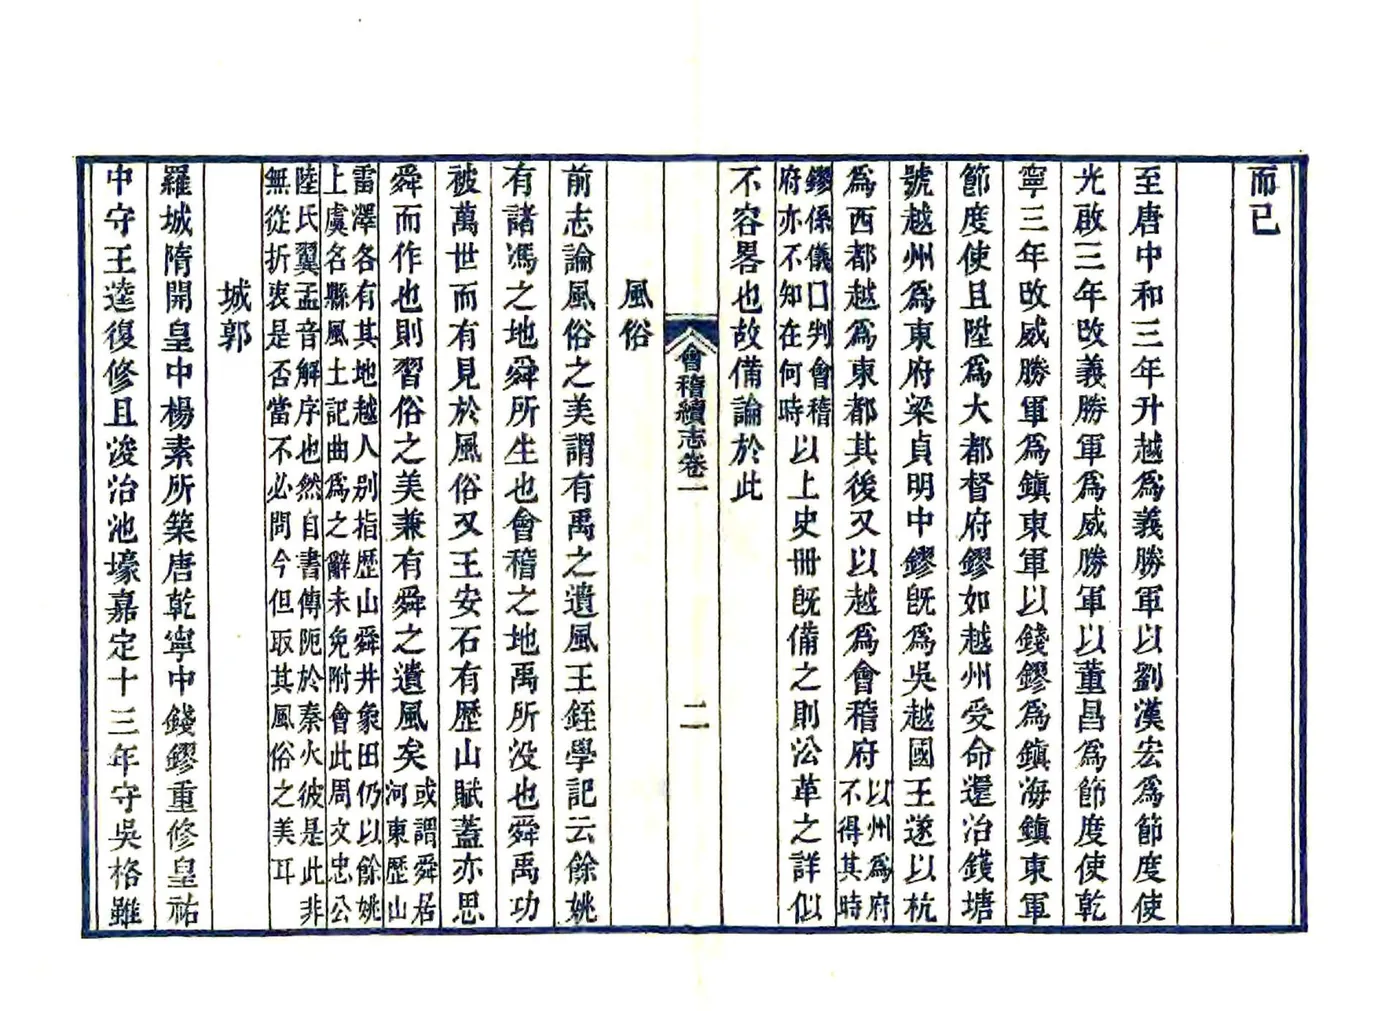 而已
至唐中和三年升越爲義勝軍以劉漢宏爲節度使
光啟三年改義勝軍爲威勝軍以董昌爲節度使乾
寧三年改威勝軍爲鎮東軍以錢鏐爲鎮海鎮東軍
節度使且陞爲大都督府鏐如越州受命還治錢塘
號越州爲東府梁貞明中鏐旣爲吳越國王遂以杭
爲西都越爲東都其後又以越爲會稽府以州爲府
不得其時
鏐係儀囗判會稽
府亦不知在何時以上史冊旣備之則沿革之詳似
不容畧也故備論於此
會稽續志卷一
二
風俗
前志論風俗之美謂有禹之遺風王銍學記云餘姚
有諸馮之地舜所生也會稽之地禹所没也舜禹功
被萬世而有見於風俗又王安石有歷山賦蓋亦思
舜而作也則習俗之美兼有舜之遺風矣或謂舜居
河東歷山
雷澤各有其地越人别指歷山舜井象田仍以餘姚
上虞名縣風土記曲爲之辭未免附會此周文忠公
陸氏翼孟音解序也然自書傳阨於秦火彼是此非
無從折衷是否當不必問今但取其風俗之美耳
城郭
羅城隋開皇中楊素所築唐乾寧中錢鏐重修皇祐
中守王逵復修且浚治池壕嘉定十三年守吳格雖